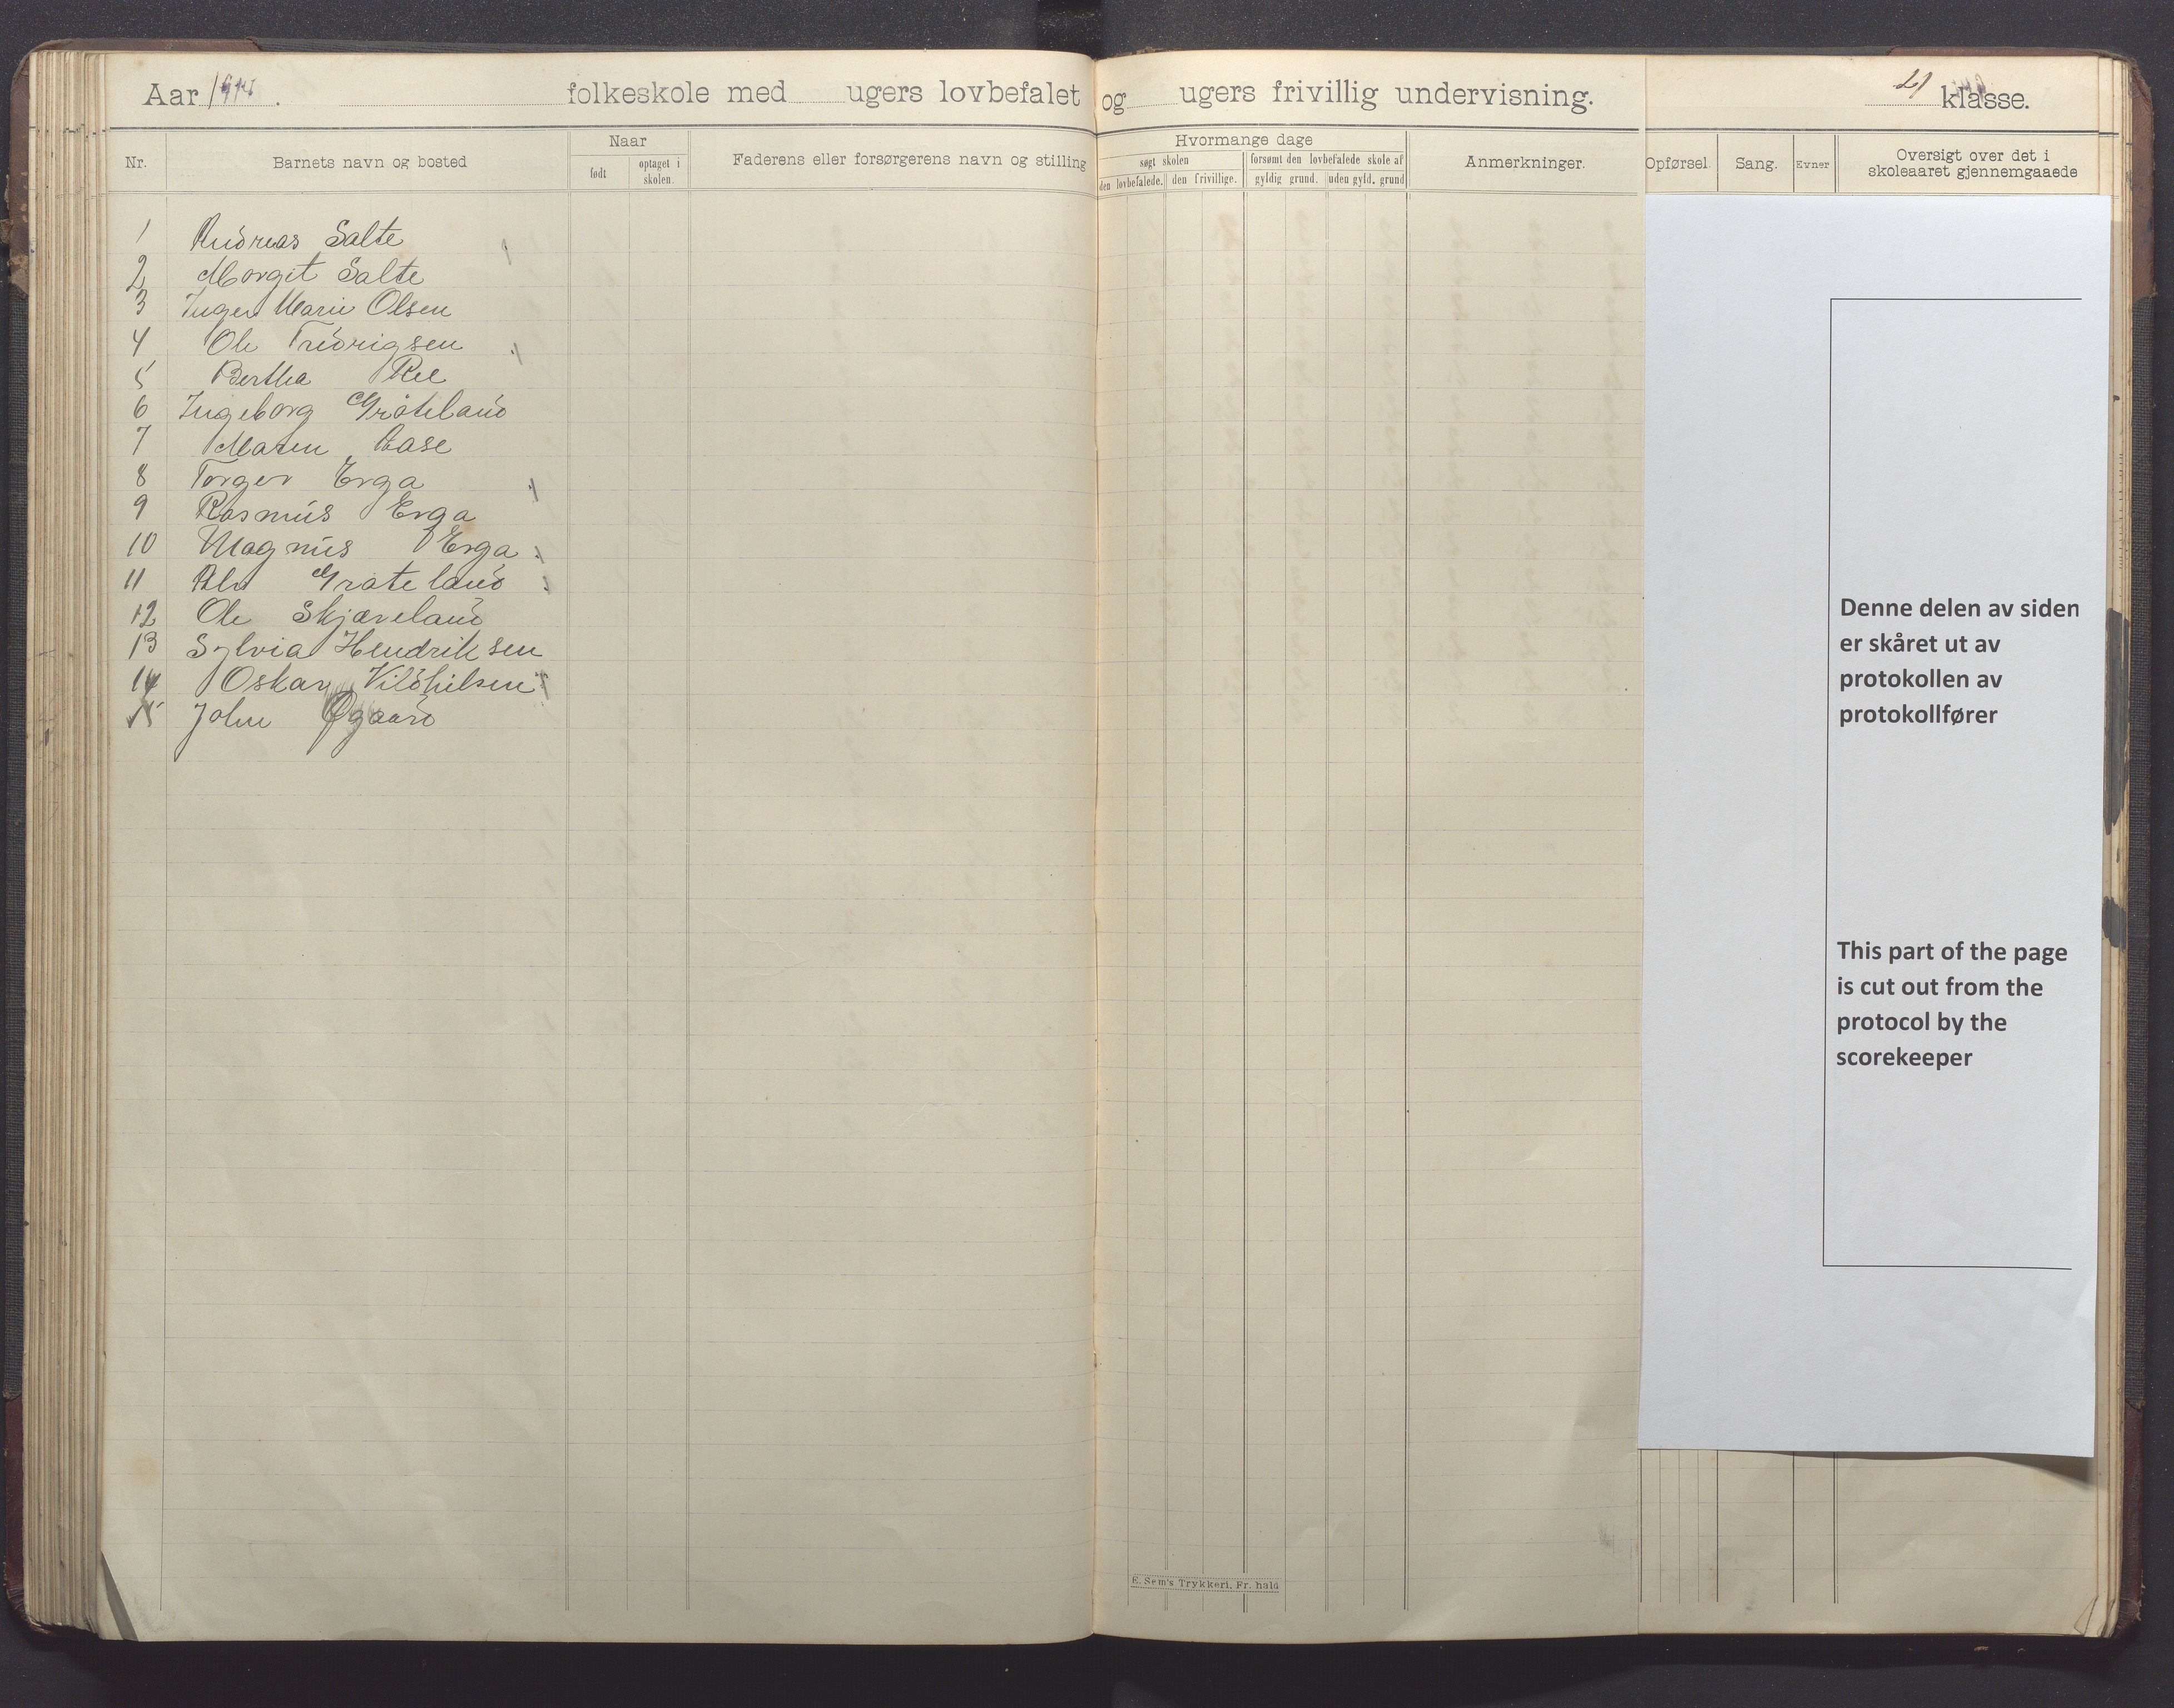 Aar folkeskole med ugers lovbefalet og ugers frivillig undervisning. klasse.
Nr. Barnets navn og bosted Naar født optaget i skolen. Faderens eller forsørgerens navn og stilling
Hvormange dage
søgt skolen forsømt den lovbefalede skole af
den lovbefalede. den frivillige. gyldig grund. uden gyld. grund
Anmerkninger. Opførsel. Sang. Evner Oversigt over det i
skoleaaret gjennemgaaede
1 Andreas Salte
2 Morgit Salte
3 Inger Marie Olsen
4 Ole Fredrigsen
5 Bertha Ree
6 Ingeborg Gråteland
7 Maren Aase
8 Torger Erga
9 Rasmus Erga
10 Magnus Erga
11 Alv Gråteland
12 Ole Skjæveland
13 Sylvia Hendriksen
14 Oskar
15 John Øgaard
Denne delen av siden
er skåret ut av
protokollen av
protokollfører
This part of the page
is cut out from the
protocol by the
scorekeeper
E. Sem's Trykkeri, Fr. hald